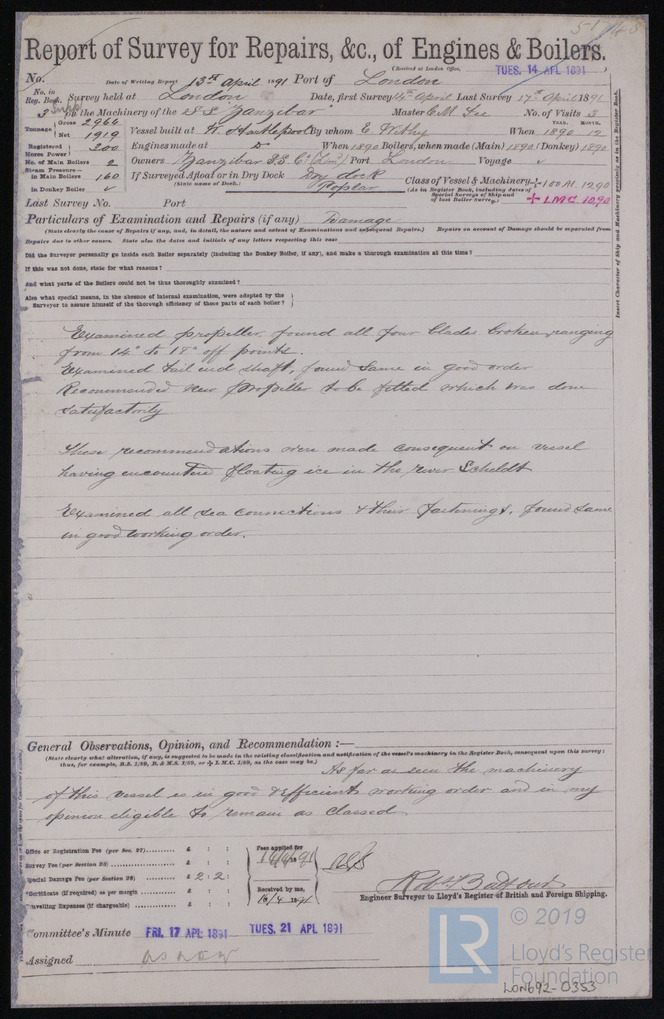 51
Report of Survey for Repairs, &c., of Engines & Boilers.
(Received at London Office, TUES. 14 APL 1891)
No. Date of Writing Report 13th April 1891 Port of London
No. in Reg. Book. Survey held at London Date, first Survey 14th April Last Survey 17th April 1891
3 on the Machinery of the S S "Zanzibar" Master C M Lee No. of Visits 3
Tonnage Gross 2964 Net 1919 Vessel built at W. Hartlepool By whom E Withy When 1890 12
YEAR. MONTH.
Registered Horse Power 300 Engines made at Do When 1890 Boilers, when made (Main) 1890 (Donkey) 1890
No. of Main Boilers 2 Owners Zanzibar S.S. Co (Lim) Port London Voyage
Steam Pressure— in Main Boilers 160 If Surveyed Afloat or in Dry Dock Dry dock Poplar Class of Vessel & Machinery 100 A1 12 90
(State name of Dock.) (As in Register Book, including dates of Special Surveys of Ship and of last Boiler Survey.) LMC 12 90
in Donkey Boiler
Last Survey No. Port
Particulars of Examination and Repairs (if any) Damage
(State clearly the cause of Repairs if any, and, in detail, the nature and extent of Examinations and subsequent Repairs.) Repairs on account of Damage should be separated from
Repairs due to other causes. State also the dates and initials of any letters respecting this case
Did the Surveyor personally go inside each Boiler separately (including the Donkey Boiler, if any), and make a thorough examination at this time?
If this was not done, state for what reasons?
And what parts of the Boilers could not be thus thoroughly examined?
Also what special means, in the absence of internal examination, were adopted by the
Surveyor to assure himself of the thorough efficiency of those parts of each boiler?
Insert Character of Ship and Machinery precisely, as in the Register Book.
Examined propeller, found all four blades broken, ranging
from 14" to 18" off points.
Examined Tail end shaft, found same in good order
Recommended new propeller to be fitted which was done
satisfactorily
These recommendations were made consequent on vessel
having encountered floating ice in the river Scheldt
Examined all sea connections & their fastenings, found same
in good working order.
General Observations, Opinion, and Recommendation :—
(State clearly what alteration, if any, is suggested to be made in the existing classification and notification of the vessel's machinery in the Register Book, consequent upon this survey:
thus, for example, B.S. 1/89, B. & M.S. 1/89, or L.M.C. 1/89, as the case may be.)
As far as seen the machinery
of this vessel is in good & efficient working order and in my
opinion eligible to remain as classed
Office or Registration Fee (per Sec. 27) £ : :
Survey Fee (per Section 28) £ : :
Special Damage Fee (per Section 28) £ 2 : 2 :
Certificate (if required) as per margin £ : :
Travelling Expenses (if chargeable) £ : :
Fees applied for 14/4/1891
Received by me, 16/4/1891
Robt Balfour
Engineer Surveyor to Lloyd's Register of British and Foreign Shipping.
Committee's Minute FRI. 17 APL 1891 TUES. 21 APL 1891
Assigned as now
LR
© 2019
Lloyd's Register
Foundation
LON692-0353